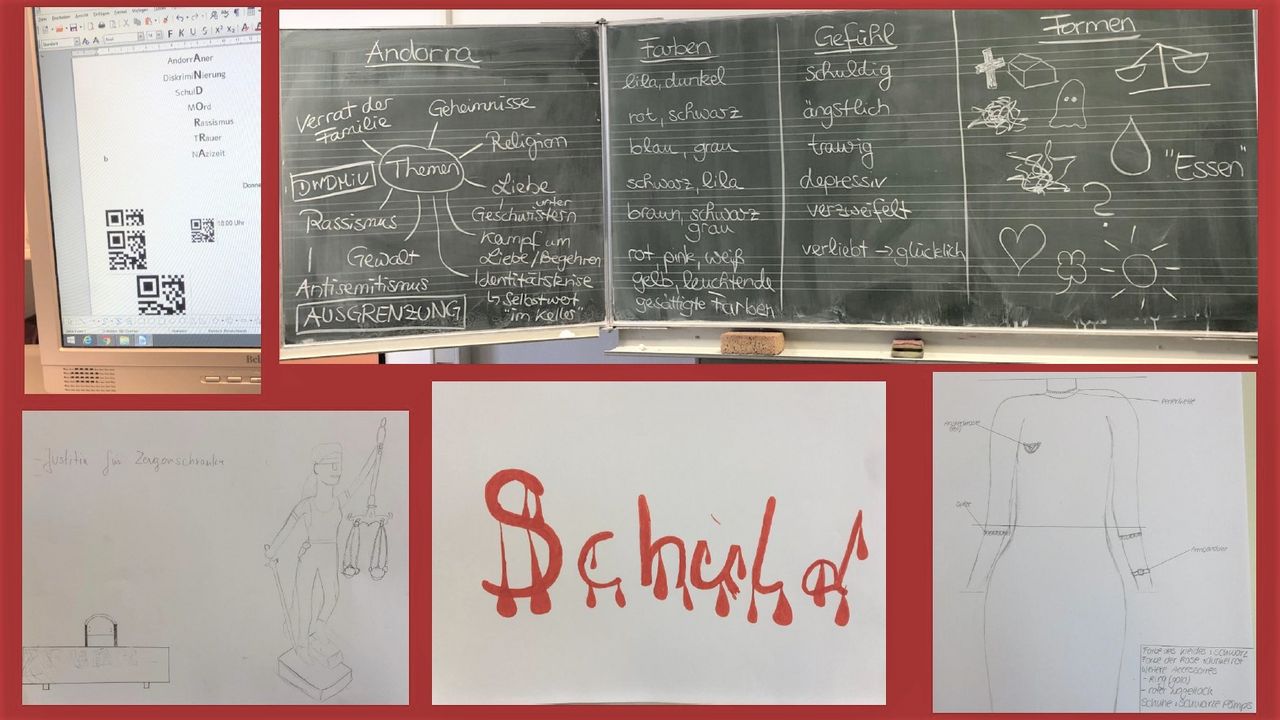 AndorrAner
DiskrimiNierung
SchulD
MOrd
Rassismus
TRauer
NAzizeit
b
18:00 Uhr
Andorra
Verrat der
Familie
Geheimnisse
Religion
Themen
DWDMIV
Liebe
unter
Geschwistern
Rassismus
Kampf um
Liebe/Begehren
Gewalt
Identitätskrise
Antisemitismus
↳ Selbstwert
"im Keller"
AUSGRENZUNG
Farben
lila, dunkel
rot, schwarz
blau, grau
schwarz, lila
braun, schwarz
grau
rot, pink, weiß
gelb, leuchtende
gesättigte Farben
Gefühl
schuldig
ängstlich
traurig
depressiv
verzweifelt
verliebt → glücklich
Formen
"Essen"
?
- Justitia für Zeugenschranke
Schuld
Perlenkette
Farbe des Kleides: schwarz
Farbe der Rose: dunkelrot
weitere Accessoires
- Ring (gold)
- roter Nagellack
Schuhe: schwarze Pumps